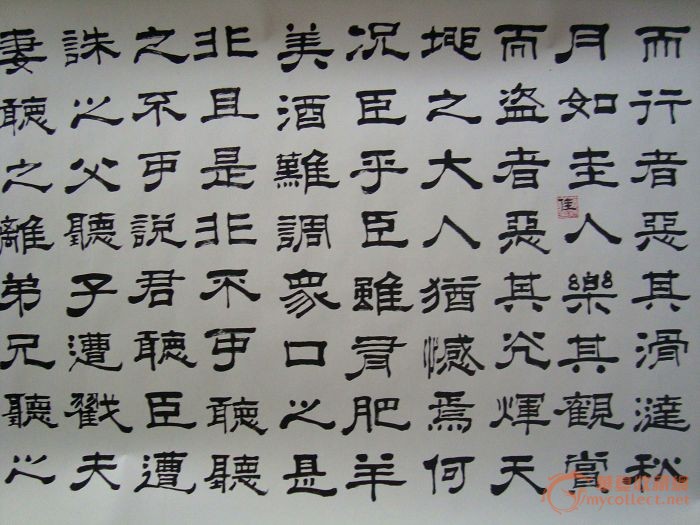 而行者惡其滑澾秋
月如圭人樂其觀賞
而盜者惡其光輝天
地之大人猶憾焉何
况臣乎臣雖有肥羊
美酒難調衆口之是
非且是非不可聽聽
之不可說君聽臣遭
誅之父聽子遭戮夫
妻聽之離弟兄聽之
mycollect.net